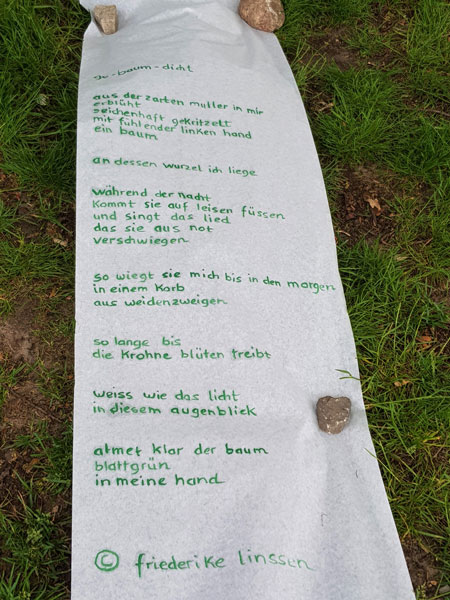 ge-baum-dicht
aus der zarten mutter in mir
erblüht
zeichenhaft gekritzelt
mit fühlender linken hand
ein baum
an dessen wurzel ich liege
während der nacht
kommt sie auf leisen füssen
und singt das lied
das sie aus not
verschwiegen
so wiegt sie mich bis in den morgen
in einem Korb
aus weidenzweigen
so lange bis
die Krohne blüten treibt
weiss wie das licht
in diesem augenblick
atmet klar der baum
blattgrün
in meine hand
© friederike linssen